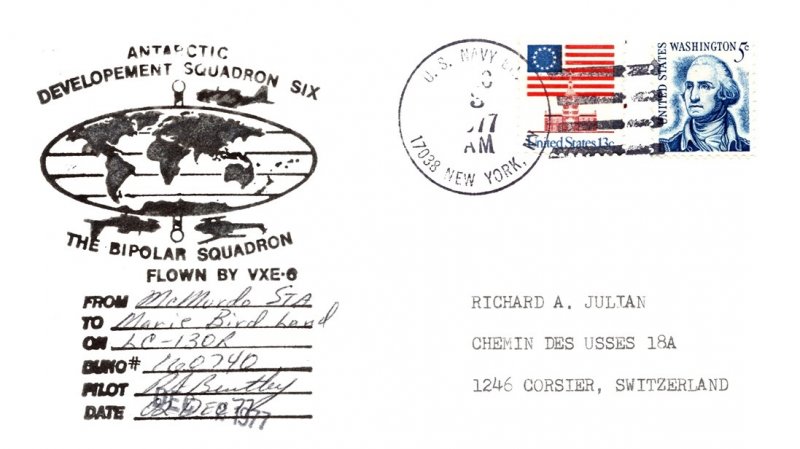 ANTARCTIC
DEVELOPEMENT SQUADRON SIX
THE BIPOLAR SQUADRON
FLOWN BY VXE-6
FROM McMurdo STA
TO Marie Bird Land
ON LC-130R
BUNO# 160740
PILOT R A Bentley
DATE 02 DEC 77
DEC 1977
U. S. NAVY
8
1977
AM
17038 NEW YORK, NY
United States 13c
UNITED STATES
WASHINGTON 5c
RICHARD A. JULIAN
CHEMIN DES USSES 18A
1246 CORSIER, SWITZERLAND